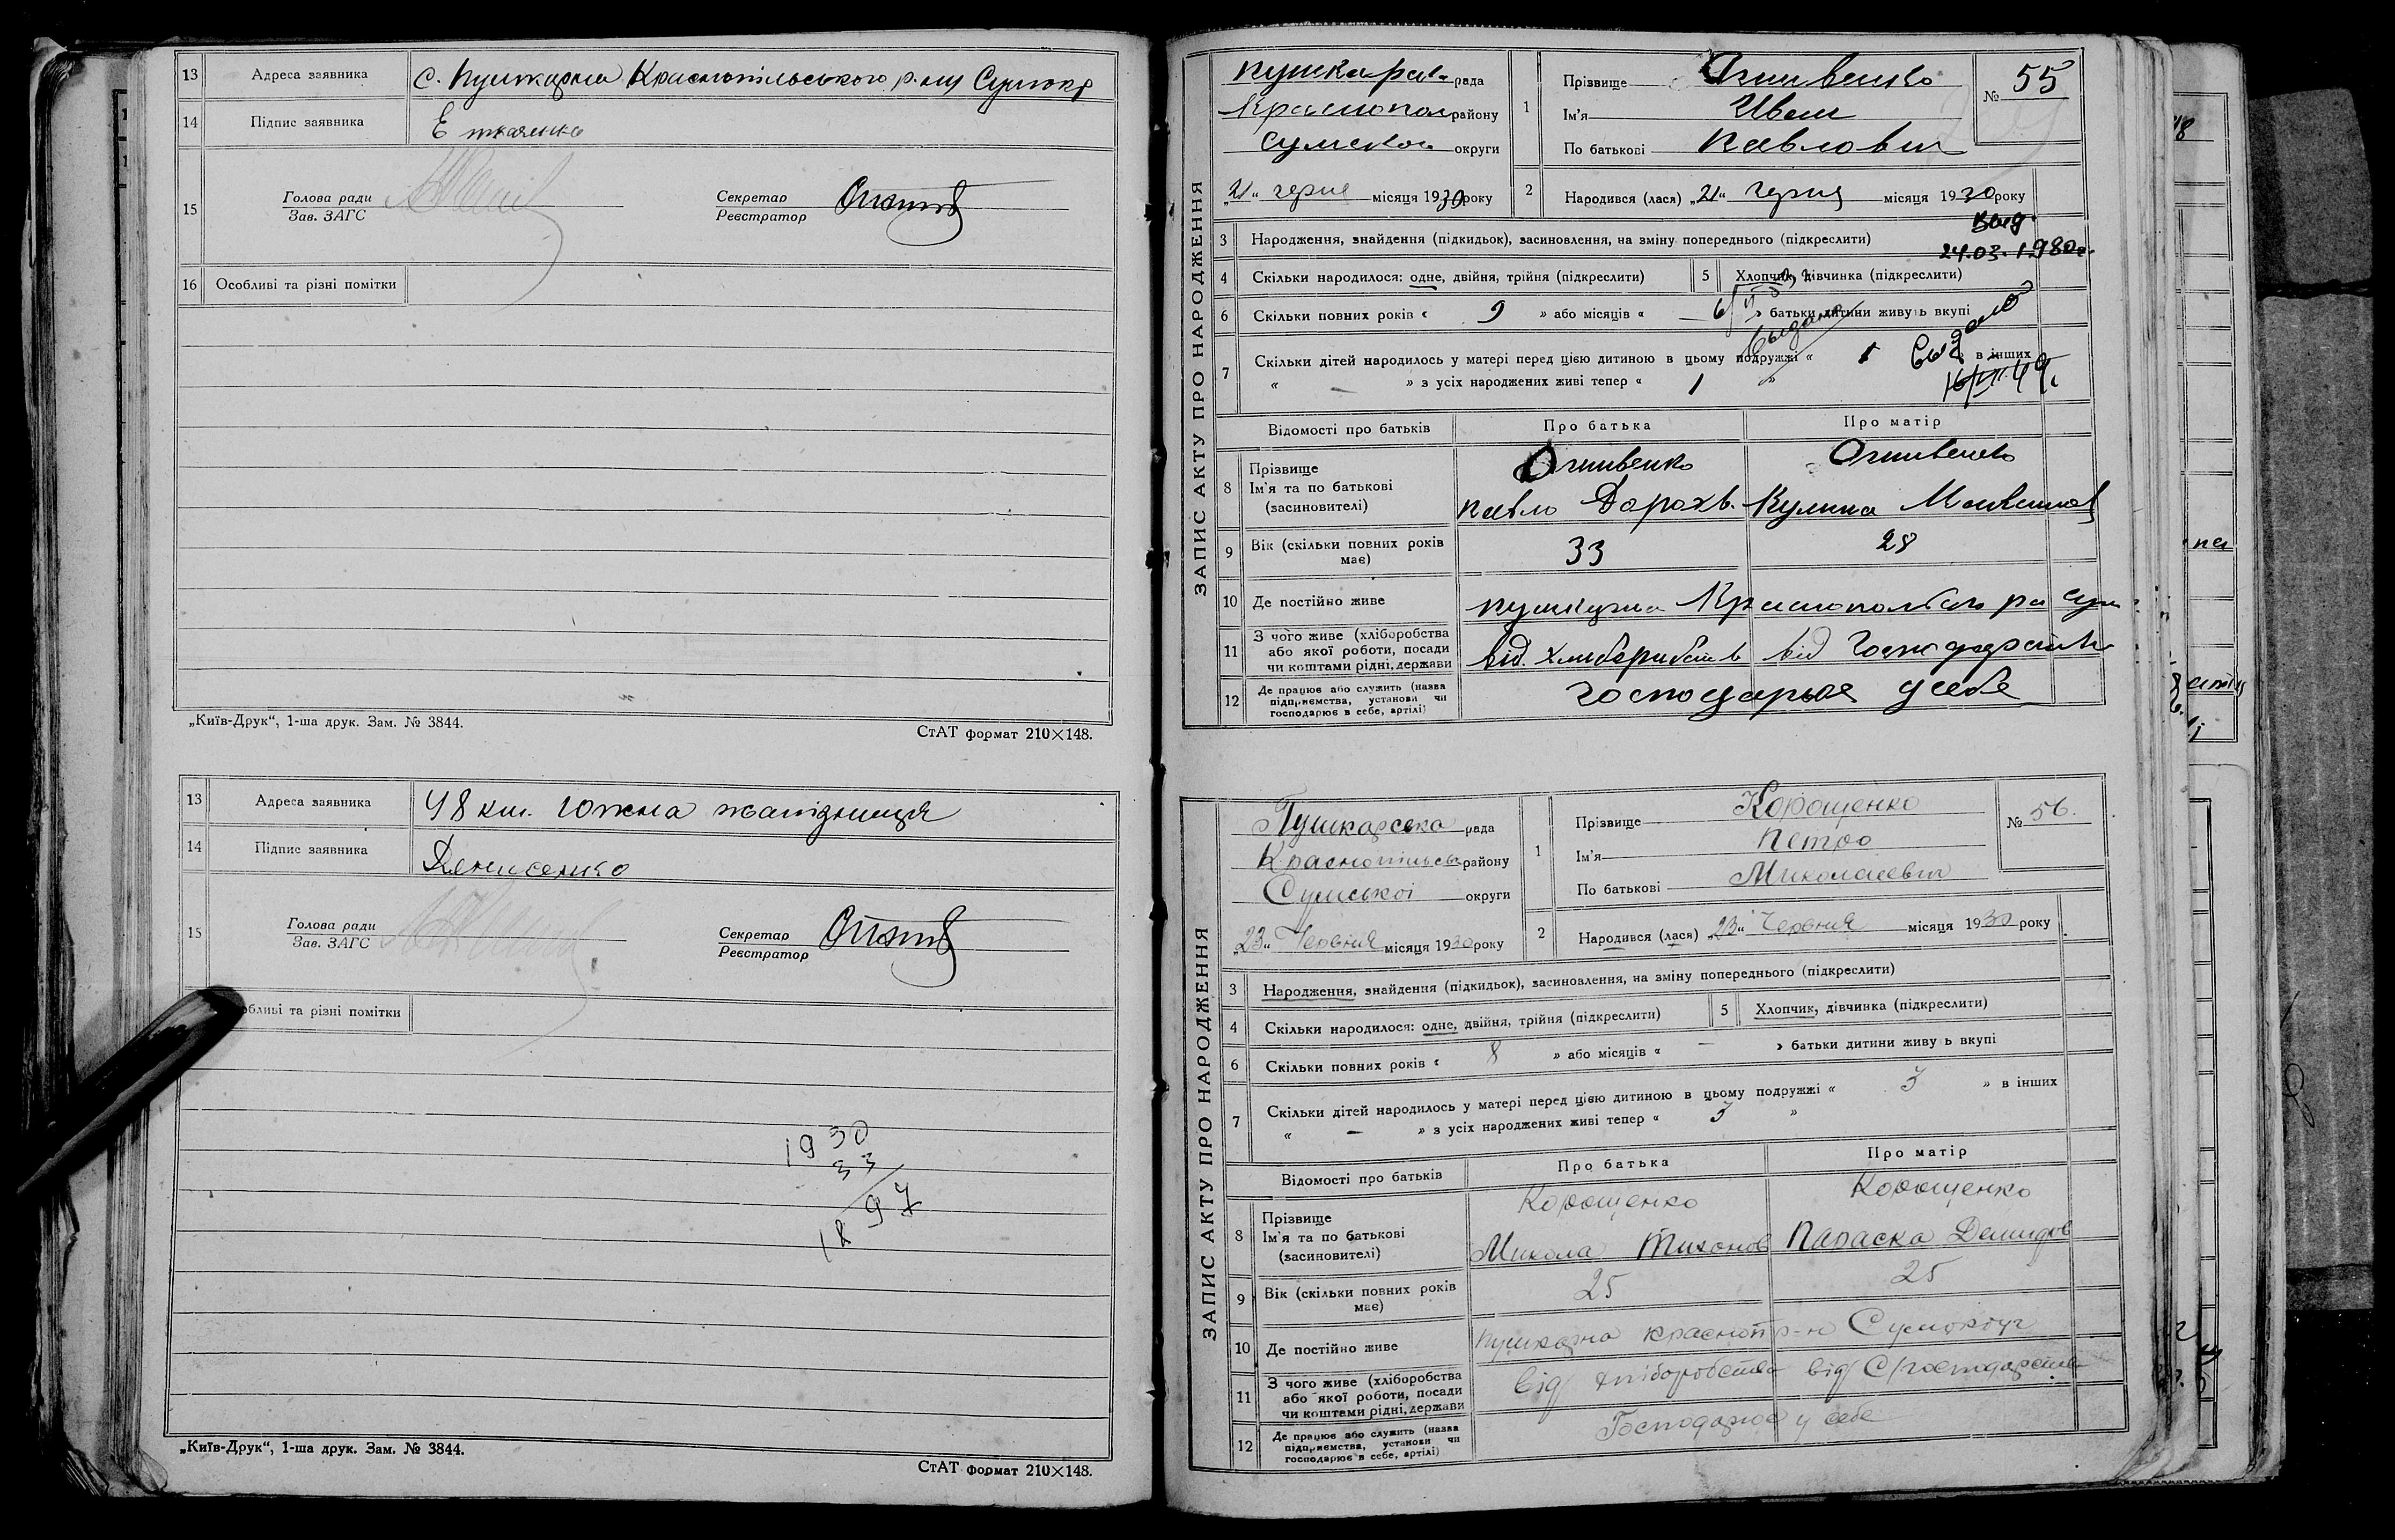 13 Адреса заявника с. Пушкарна Краснопільського р-ну Сумокр
14 Підпис заявника Е Ткаченко
15 Голова ради
Зав. ЗАГС
Секретар
Реєстратор
16 Особливі та різні помітки
„Київ-Друк“, 1-ша друк. Зам. № 3844.
СтАТ формат 210×148.
13 Адреса заявника 48 км. Южна
14 Підпис заявника Денисенко
15 Голова ради
Зав. ЗАГС
Секретар
Реєстратор
обливі та різні помітки
1930
33
1897
„Київ-Друк“, 1-ша друк. Зам. № 3844.
СтАТ формат 210×148.
ЗАПИС АКТУ ПРО НАРОДЖЕННЯ
Пушкарсв. рада
Краснопол району
Сумской округи
„21“ червня місяця 1930 року
1 Прізвище Огиивенко
Ім'я Иван
По батькові Павлович
№ 55
2 Народився (лася) „21“ червня місяця 1930 року
выд.
24.03.1980г.
3 Народження, знайдення (підкидьок), засиновлення, на зміну попереднього (підкреслити)
4 Скільки народилося: одне, двійня, трійня (підкреслити)
5 Хлопчик, дівчинка (підкреслити)
6 Скільки повних років « 9 » або місяців « — » батьки дитини живуть вкупі
7 Скільки дітей народилось у матері перед цією дитиною в цьому подружжі « 1 » в інших
« — » з усіх народжених живі тепер « 1 »
Відомості про батьків Про батька Про матір
8 Прізвище
Ім'я та по батькові
(засиновителі)
Огиивенко Огиивенко
Павло Дорохв. Кулина
9 Вік (скільки повних років має) 33 28
10 Де постійно живе Пушкарна
11 З чого живе (хліборобства
або якої роботи, посади
чи коштами рідні, держави
від. хлиборобств від господарств
12 Де працює або служить (назва
підприємства, установи чи
господарює в себе, артілі)
господарює усебе
ЗАПИС АКТУ ПРО НАРОДЖЕННЯ
Пушкарська рада
Краснопільськ району
Сумської округи
„23“ Червня місяця 1930 року
1 Прізвище Корощенко
Ім'я Петро
По батькові Миколаєвич
№ 56.
2 Народився (лася) „23“ Червня місяця 1930 року
3 Народження, знайдення (підкидьок), засиновлення, на зміну попереднього (підкреслити)
4 Скільки народилося: одне, двійня, трійня (підкреслити)
5 Хлопчик, дівчинка (підкреслити)
6 Скільки повних років « 8 » або місяців « — » батьки дитини живу ь вкупі
7 Скільки дітей народилось у матері перед цією дитиною в цьому подружжі « 3 » в інших
« — » з усіх народжених живі тепер « 3 »
Відомості про батьків Про батька Про матір
8 Прізвище
Ім'я та по батькові
(засиновителі)
Корощенко Корощенко
Микола Тихонов Параска Демидов
9 Вік (скільки повних років має) 25 25
10 Де постійно живе Пушкарна красноп р-н Сумокруг
11 З чого живе (хліборобства
або якої роботи, посади
чи коштами рідні, держави
від хліборобства від С/господарства
12 Де працює або служить (назва
підприємства, установи чи
господарює в себе, артілі)
Господарює у себе